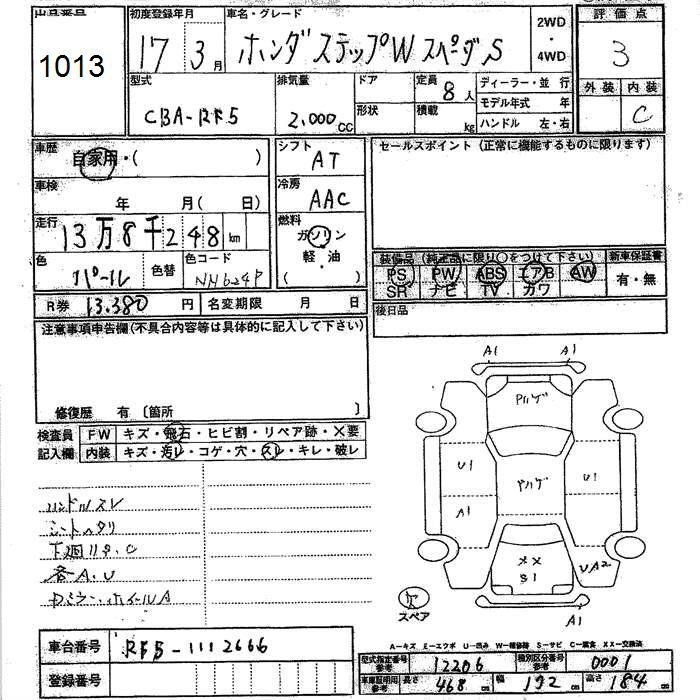 出品番号 初度登録年月 車名・グレード 2WD ・ 4WD 評価点
1013 17年 3月 ホンダ ステップW スパーダS 3
型式 排気量 ドア 定員 8人 ディーラー・並 行 外装 内装
CBA-RF5 2,000cc 形状 積載 kg モデル年式 年 C
ハンドル 左・右
車歴 自家用・( ) シフト AT セールスポイント(正常に機能するものに限ります)
車検 年 月( 日) 冷房 AAC
走行 13万8千248km 燃料 ガソリン 軽・油 ( )
色 パール 色替 色コード NH624P
装備品(純正品に限り○をつけて下さい) 新車保証書
PS PW ABS エアB AW 有・無
SR ナビ TV カワ
R券 13.380円 名変期限 月 日 後日品
注意事項申告欄(不具合内容等は具体的に記入して下さい)
修復歴 有 〔箇所 〕
検査員 FW キズ・飛石・ヒビ割・リペア跡・×要
記入欄 内装 キズ・汚レ・コゲ・穴・スレ・キレ・破レ
ハンドルスレ
シートヘタリ
下廻りS.C
各A.U
ドミラー.ホイールA
A1 A1
パハゲ
U1 パハゲ U1
A1
××
S1 UA2
スペア A1
A…キズ E…エクボ U…凹み W…補修跡 S…サビ C…腐食 XX…交換済
車台番号 RF5-1112666
登録番号
型式指定番号 参考 12206 種別区分番号 参考 0001
車庫証明用 参考 長さ 468cm 幅 172cm 高さ 184cm